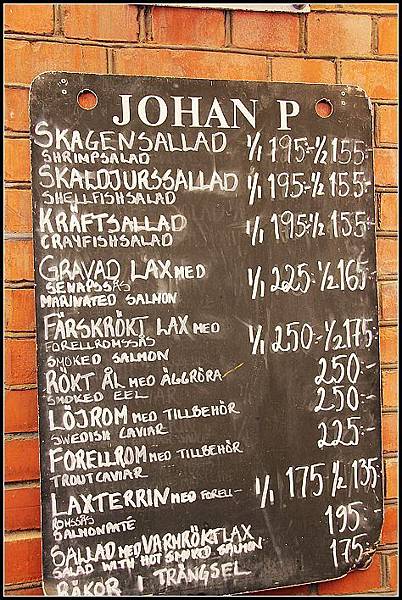 JOHAN P
SKAGENSALLAD 1/1 195:- 1/2 155:-
SHRIMPSALAD
SKALDJURSSALLAD 1/1 195:- 1/2 155:-
SHELLFISHSALAD
KRÄFTSALLAD 1/1 195:- 1/2 155:-
CRAYFISHSALAD
GRAVAD LAX MED 1/1 225:- 1/2 165:-
SENAPSSÅS
MARINATED SALMON
FÄRSKRÖKT LAX MED 1/1 250:- 1/2 175:-
FORELLROMSSÅS
SMOKED SALMON
RÖKT ÅL MED ÄGGRÖRA 250:-
SMOKED EEL
LÖJROM MED TILLBEHÖR 250:-
SWEDISH CAVIAR
FORELLROM MED TILLBEHÖR 225:-
TROUTCAVIAR
LAXTERRIN MED FORELL- 1/1 175 1/2 135:-
ROMSSÅS
SALMONPATÉ
SALLAD MED VARMRÖKT LAX 195:-
SALAD WITH HOT SMOKED SALMON
RÄKOR I TRÄNGSEL 175:-